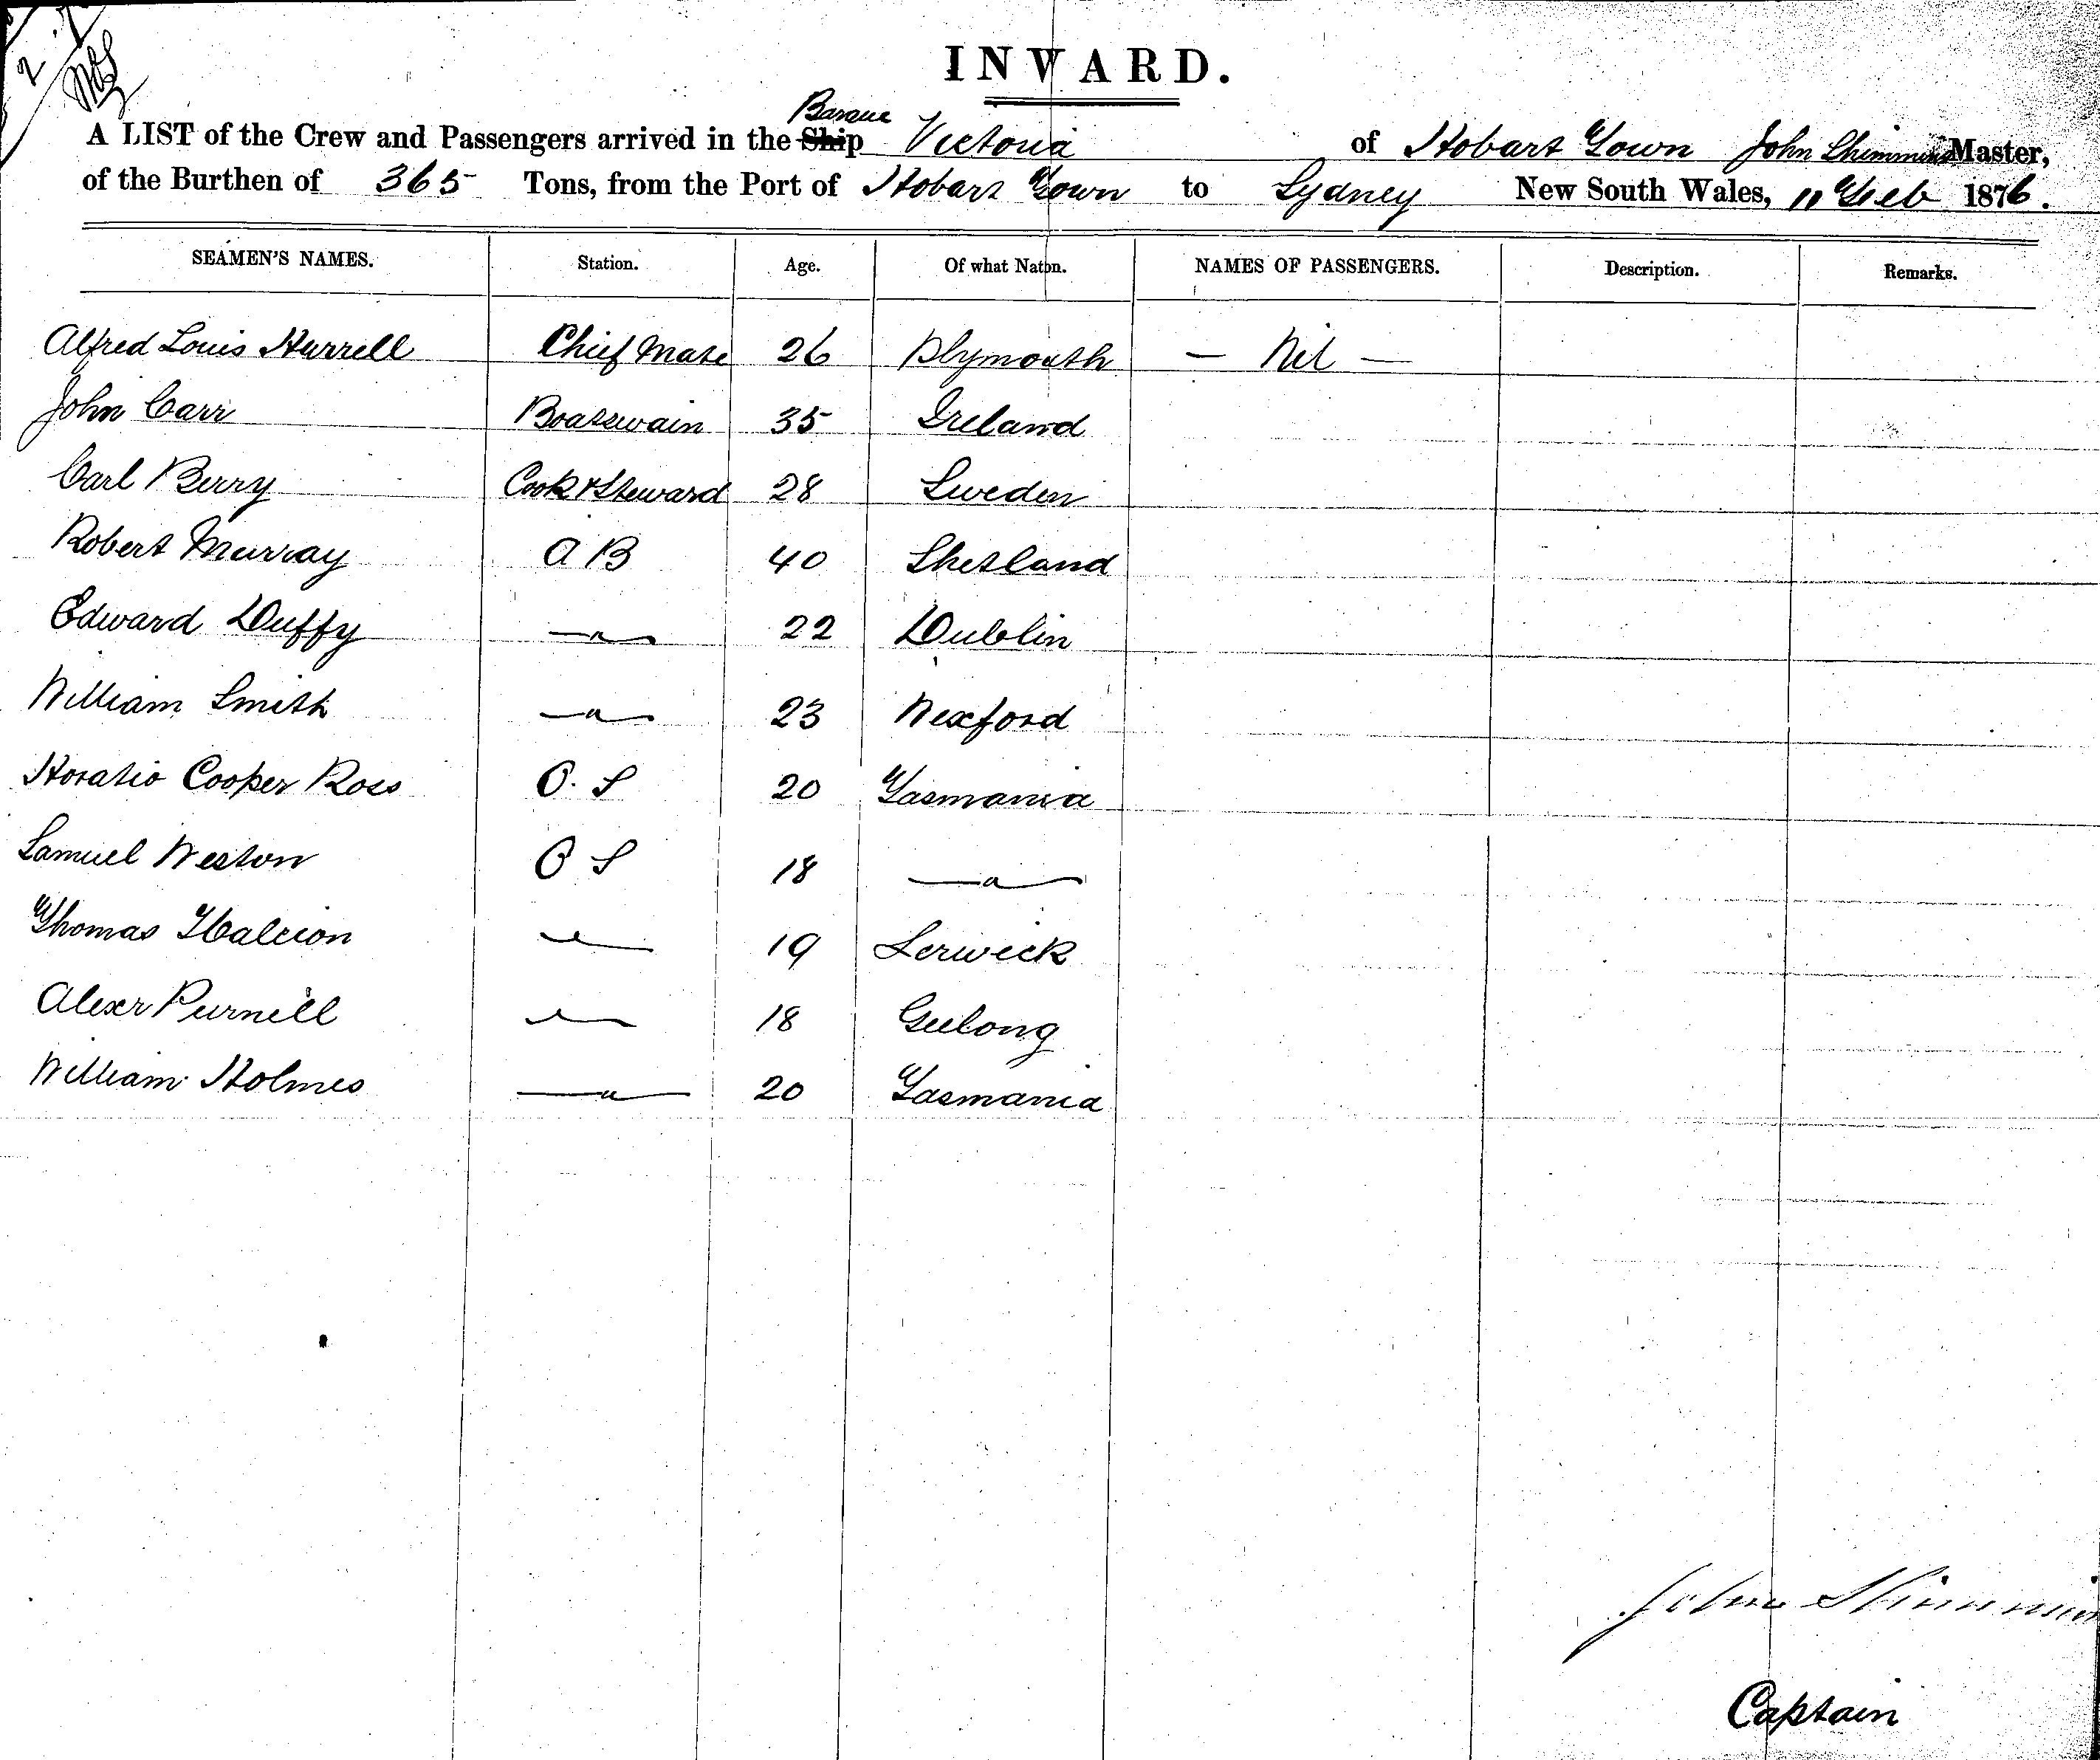 INWARD.
Barque
A LIST of the Crew and Passengers arrived in the Ship Victoria of Hobart Town John Shimmins Master,
of the Burthen of 365 Tons, from the Port of Hobart Town to Sydney New South Wales, 11 Feb 1876.
SEAMEN'S NAMES. Station. Age. Of what Natn. NAMES OF PASSENGERS. Description. Remarks.
Alfred Louis Hurrell Chief Mate 26 Plymouth — Nil —
John Carr Boatswain 35 Ireland
Carl Berry Cook & Steward 28 Sweden
Robert Murray A B 40 Shetland
Edward Duffy —"— 22 Dublin
William Smith —"— 23 Wexford
Horatio Cooper Ross O. S 20 Tasmania
Samuel Weston O S 18 —"—
Thomas Halcion —"— 19 Lerwick
Alexr Purnell —"— 18 Geelong
William Holmes —"— 20 Tasmania
John Shimmins
Captain